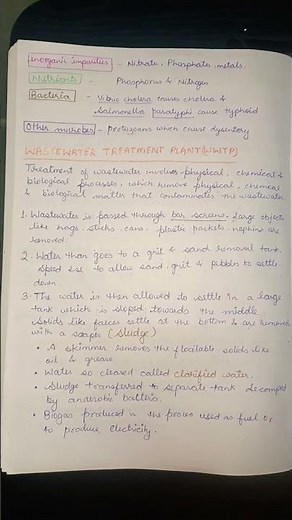 Inorganic impurities - Nitrate, Phosphates, metals.
Nutrients - Phosphorus & Nitrogen
Bacteria - Vibrio cholera causes cholera &
Salmonella paratyphi cause typhoid
Other microbes - protozoans which cause dysentery
WASTEWATER TREATMENT PLANT (WWTP)
Treatment of wastewater involves physical, chemical &
biological processes, which remove physical, chemical
& biological matter that contaminates the wastewater
1. Wastewater is passed through bar screens. Large objects
like rags, sticks, cans, plastic packets, napkins are
removed.
2. Water then goes to a grit & sand removal tank.
Speed is to allow sand, grit & pebbles to settle
down
3. The water is then allowed to settle in a large
tank which is sloped towards the middle
Solids like faeces settle at the bottom & are removed
with a scraper (sludge)
• A skimmer removes the floatable solids like
oil & grease
• Water so cleared called clarified water.
• Sludge transferred to separate tank decomposed
by anaerobic bacteria.
• Biogas produced in the process used as fuel or
to produce electricity.